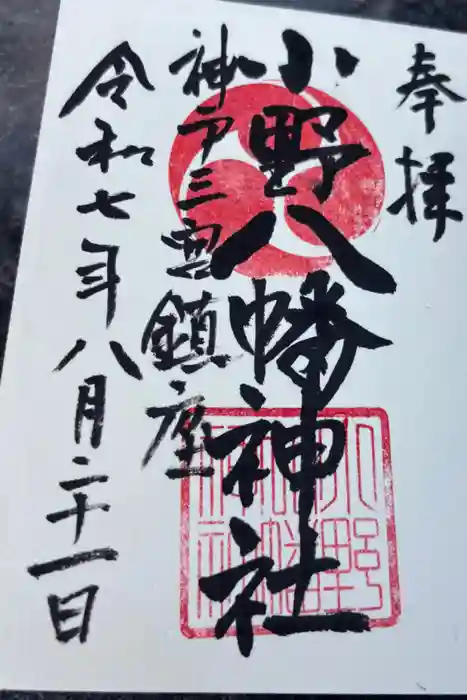 奉拝
小野八幡神社
神戸三宮鎮座
令和七年八月二十一日